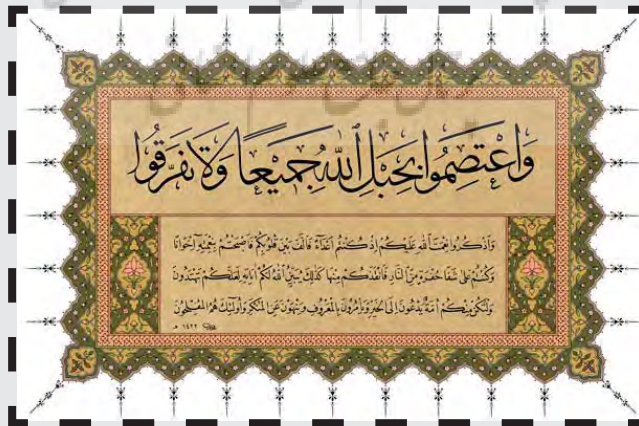 وَاعْتَصِمُوا بِحَبْلِ ٱللَّهِ جَمِيعًا وَلَا تَفَرَّقُوا
وَاذْكُرُوا نِعْمَتَ اللَّهِ عَلَيْكُمْ إِذْ كُنْتُمْ أَعْدَاءً فَأَلَّفَ بَيْنَ قُلُوبِكُمْ فَأَصْبَحْتُمْ بِنِعْمَتِهِ إِخْوَانًا
وَكُنْتُمْ عَلَىٰ شَفَا حُفْرَةٍ مِنَ النَّارِ فَأَنْقَذَكُمْ مِنْهَا كَذَٰلِكَ يُبَيِّنُ اللَّهُ لَكُمْ آيَاتِهِ لَعَلَّكُمْ تَهْتَدُونَ
وَلْتَكُنْ مِنْكُمْ أُمَّةٌ يَدْعُونَ إِلَى الْخَيْرِ وَيَأْمُرُونَ بِالْمَعْرُوفِ وَيَنْهَوْنَ عَنِ الْمُنْكَرِ وَأُولَٰئِكَ هُمُ الْمُفْلِحُونَ
١٤٢٢ هـ